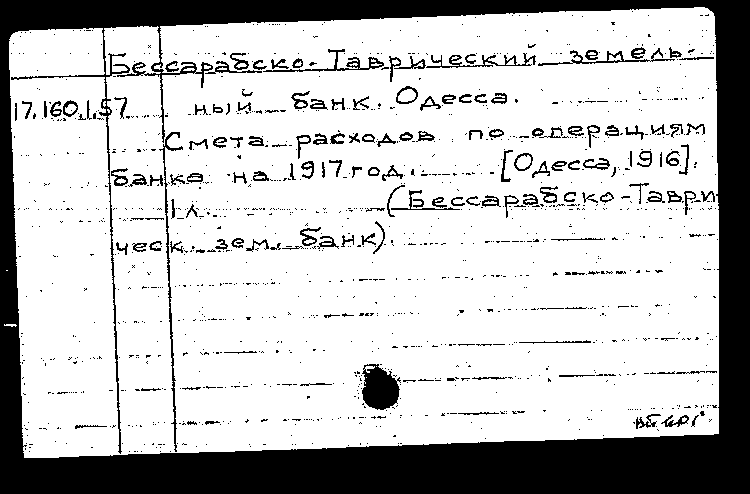 Бессарабско-Таврический земель-
17.160.1.57 ный банк. Одесса.
Смета расходов по операциям
банка на 1917 год. [Одесса, 1916].
1 л. (Бессарабско-Таври
ческ. зем. банк).